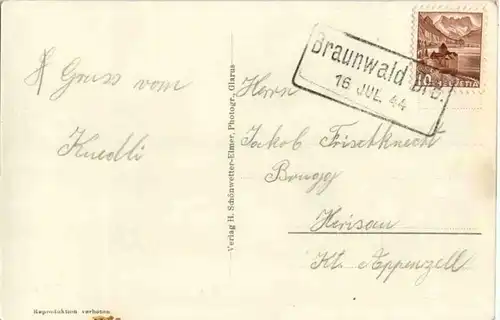 Gruss vom
Kuedli
Verlag H. Schönwetter-Elmer, Photogr., Glarus
Reproduktion verboten
Braunwald Brb.
16 JUL. 44
10 HELVETIA
Herrn
Jakob Frischknecht
Brugg
Herisau
Kt. Appenzell